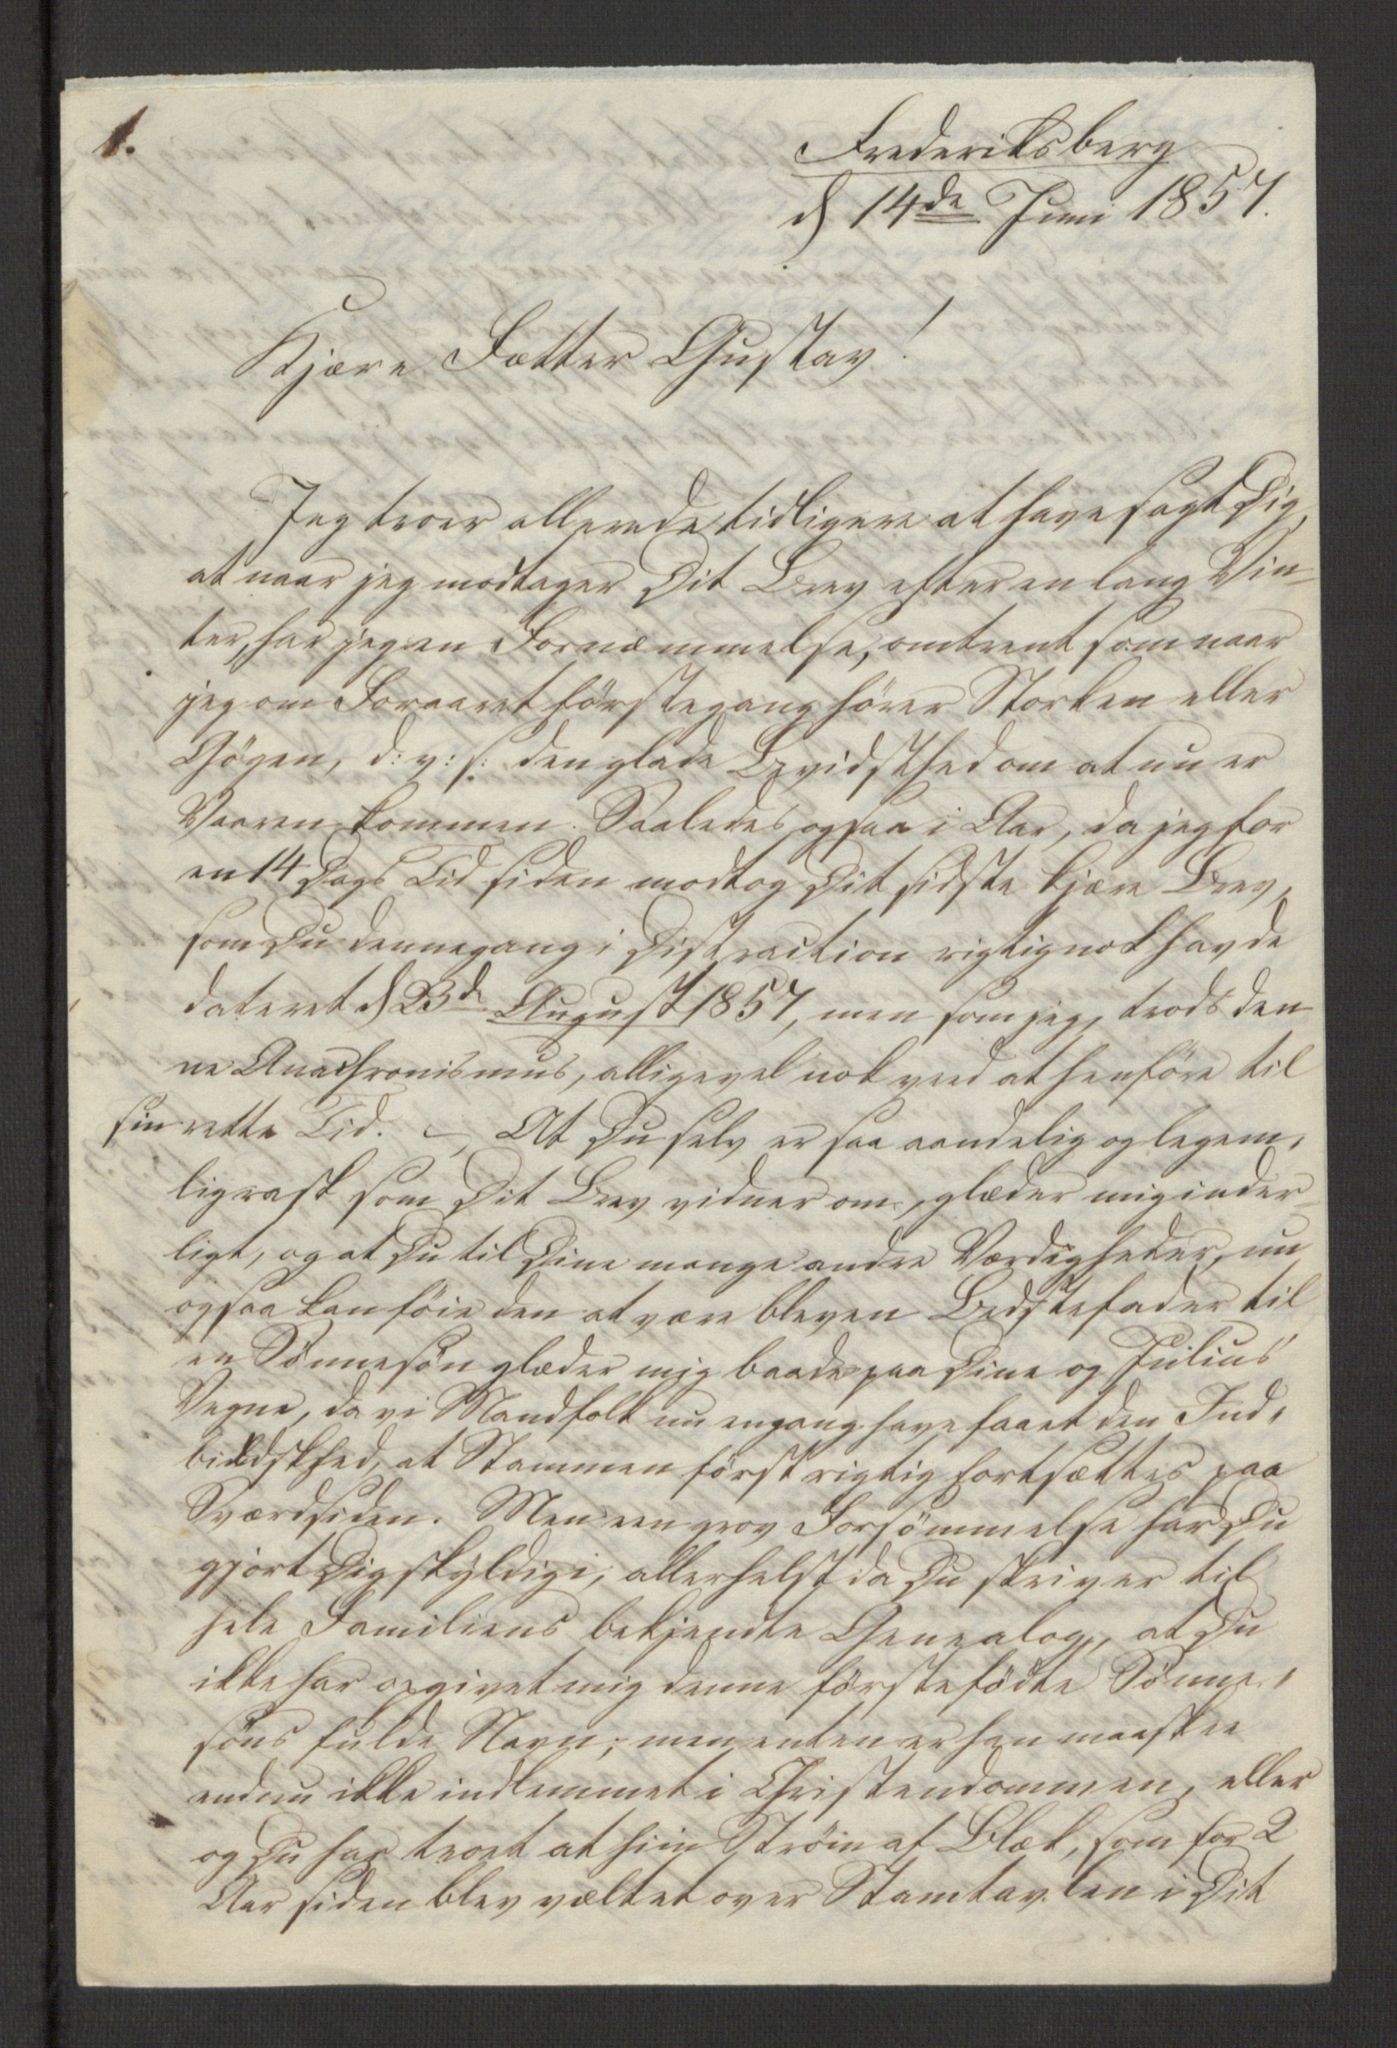 1.
Frederiksberg
d 14de Juni 1857.
Kjære Fætter Gustav!
Jeg troer allerede tidligere at have sagt Dig,
at naar jeg modtager Dit Brev efter en lang Vin-
ter, har jeg en Fornæmmelse, omtrent som naar
jeg om Foraaret förstegang hörer Storken eller
Gjögen, d: v: s: den glade Bevidsthed om at nu er
Vaaren kommen. Saaledes ogsaa i Aar, da jeg for
en 14 Dags Tid siden modtog Dit sidste kjære Brev,
som Du dennegang i Distraction rigtignok havde
dateret d 23de August 1857, men som jeg, trods den-
ne Anachronismus, alligevel nok veed at henföre til
sin rette Tid. — At Du selv er saa aandelig og legem-
lig rask som Dit Brev vidner om, glæder mig inder-
ligt, og at Du til Dine mange andre Værdigheder, nu
ogsaa kan föie den at være bleven Bedstefader til
en Sönnesön glæder mig baade paa Dine og Julius'
Vegne, da vi Mandfolk nu engang have faaet den Ind-
bildskhed, at Stammen först rigtig fortsættes paa
Sværdsiden. Men een grov Forsömmelse har Du
gjort Dig skyldig i, allerhelst da Du skriver til
hele Familiens bekjendte Genealog, at Du
ikke har opgivet mig denne förstefödte Sönne-
söns fulde Navn; men enten er han maaskee
endnu ikke indlemmet i Christendommen, eller
og Du har troet at hiin Ström af Blæk, som for 2
Aar siden blev væltet over Stamtavlen i Dit